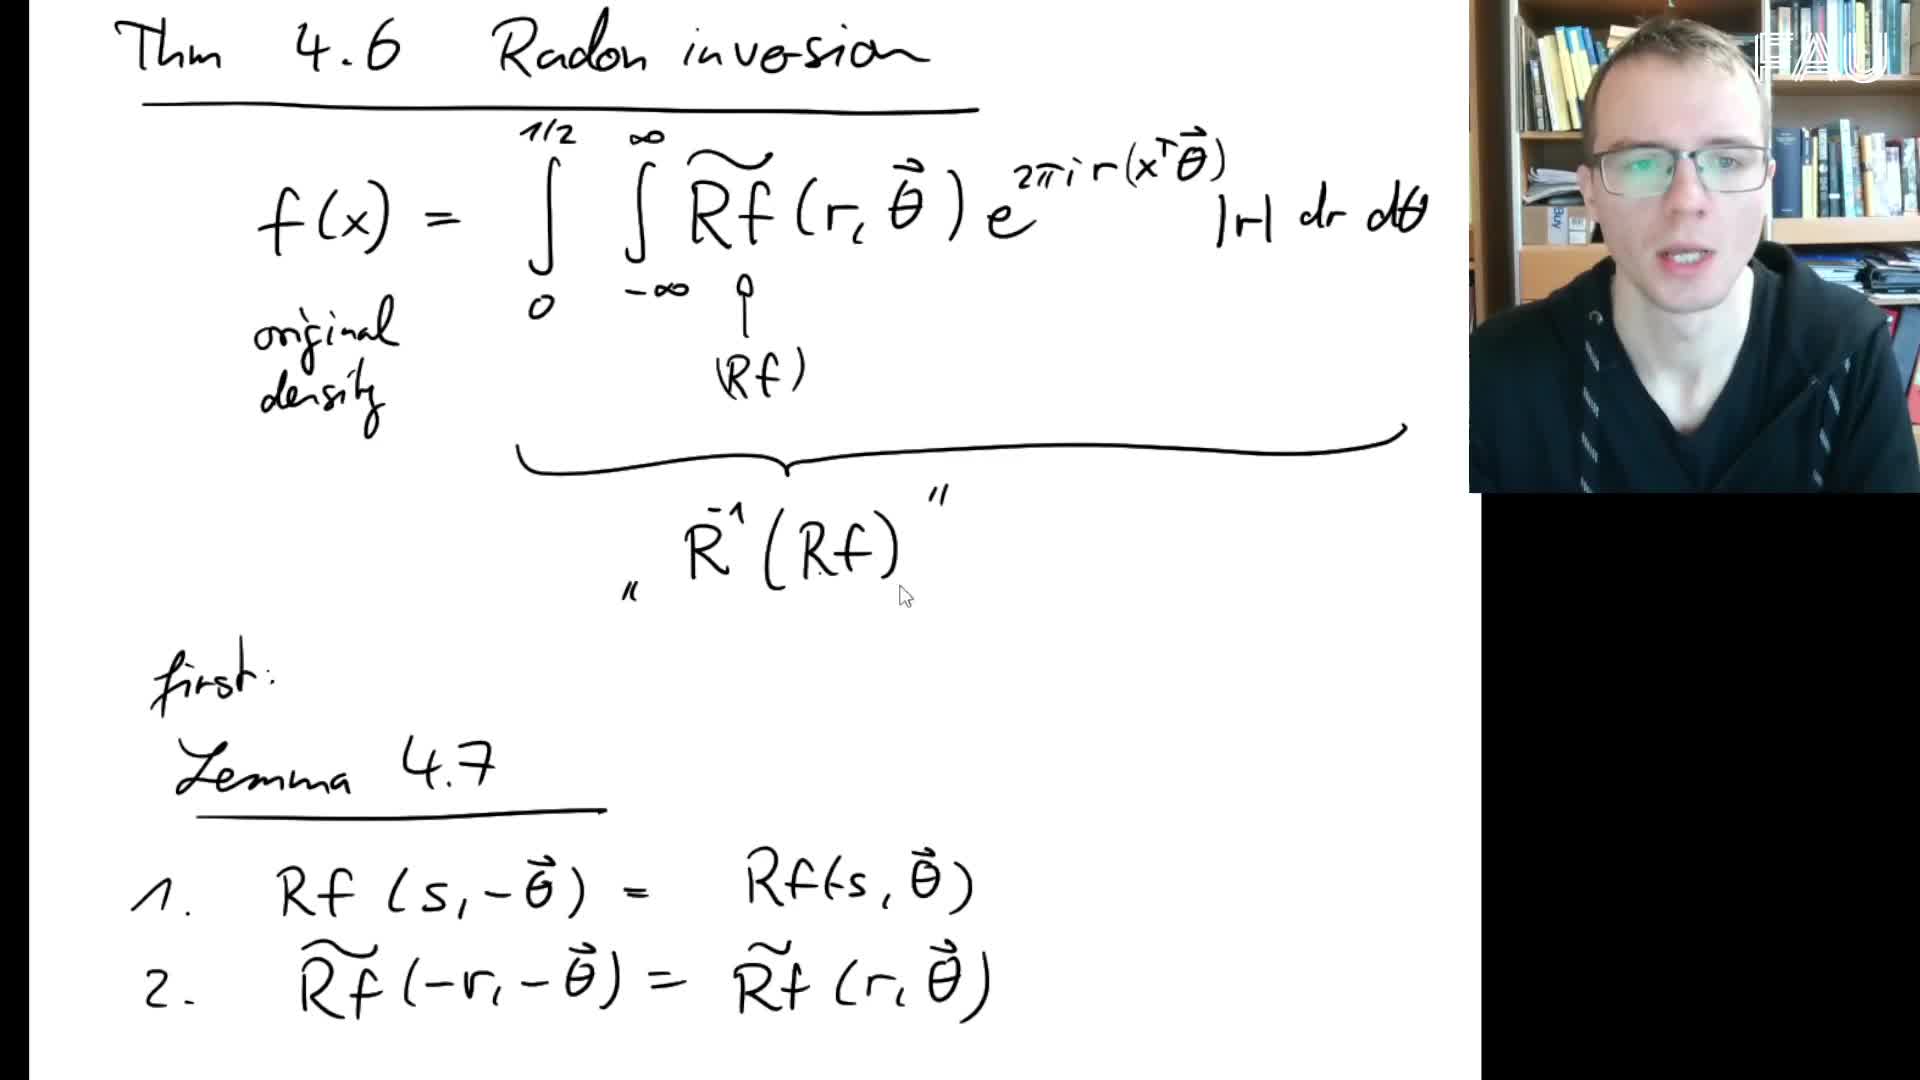 Thm 4.6 Radon inversion
f(x) = ∫₀^{1/2} ∫_{-∞}^{∞} \widetilde{Rf}(r, \vec{θ}) e^{2πir(x^T\vec{θ})} |r| dr dθ
original
density
(Rf)
„ R^{-1}(Rf) "
first:
Lemma 4.7
1. Rf(s, -\vec{θ}) = Rf(-s, \vec{θ})
2. \widetilde{Rf}(-r, -\vec{θ}) = \widetilde{Rf}(r, \vec{θ})
FAU
Buy